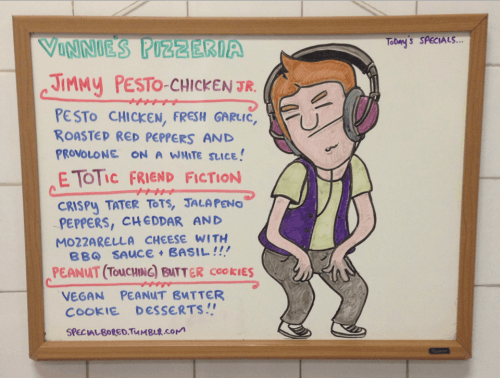 VINNIE'S PIZZERIA
TODAY'S SPECIALS...
JIMMY PESTO-CHICKEN JR.
PESTO CHICKEN, FRESH GARLIC,
ROASTED RED PEPPERS AND
PROVOLONE ON A WHITE SLICE!
E TOTIC FRIEND FICTION
CRISPY TATER TOTS, JALAPENO
PEPPERS, CHEDDAR AND
MOZZARELLA CHEESE WITH
BBQ SAUCE + BASIL!!!
PEANUT (TOUCHING) BUTTER COOKIES
VEGAN PEANUT BUTTER
COOKIE DESSERTS!!
SPECIALBORED.TUMBLR.COM